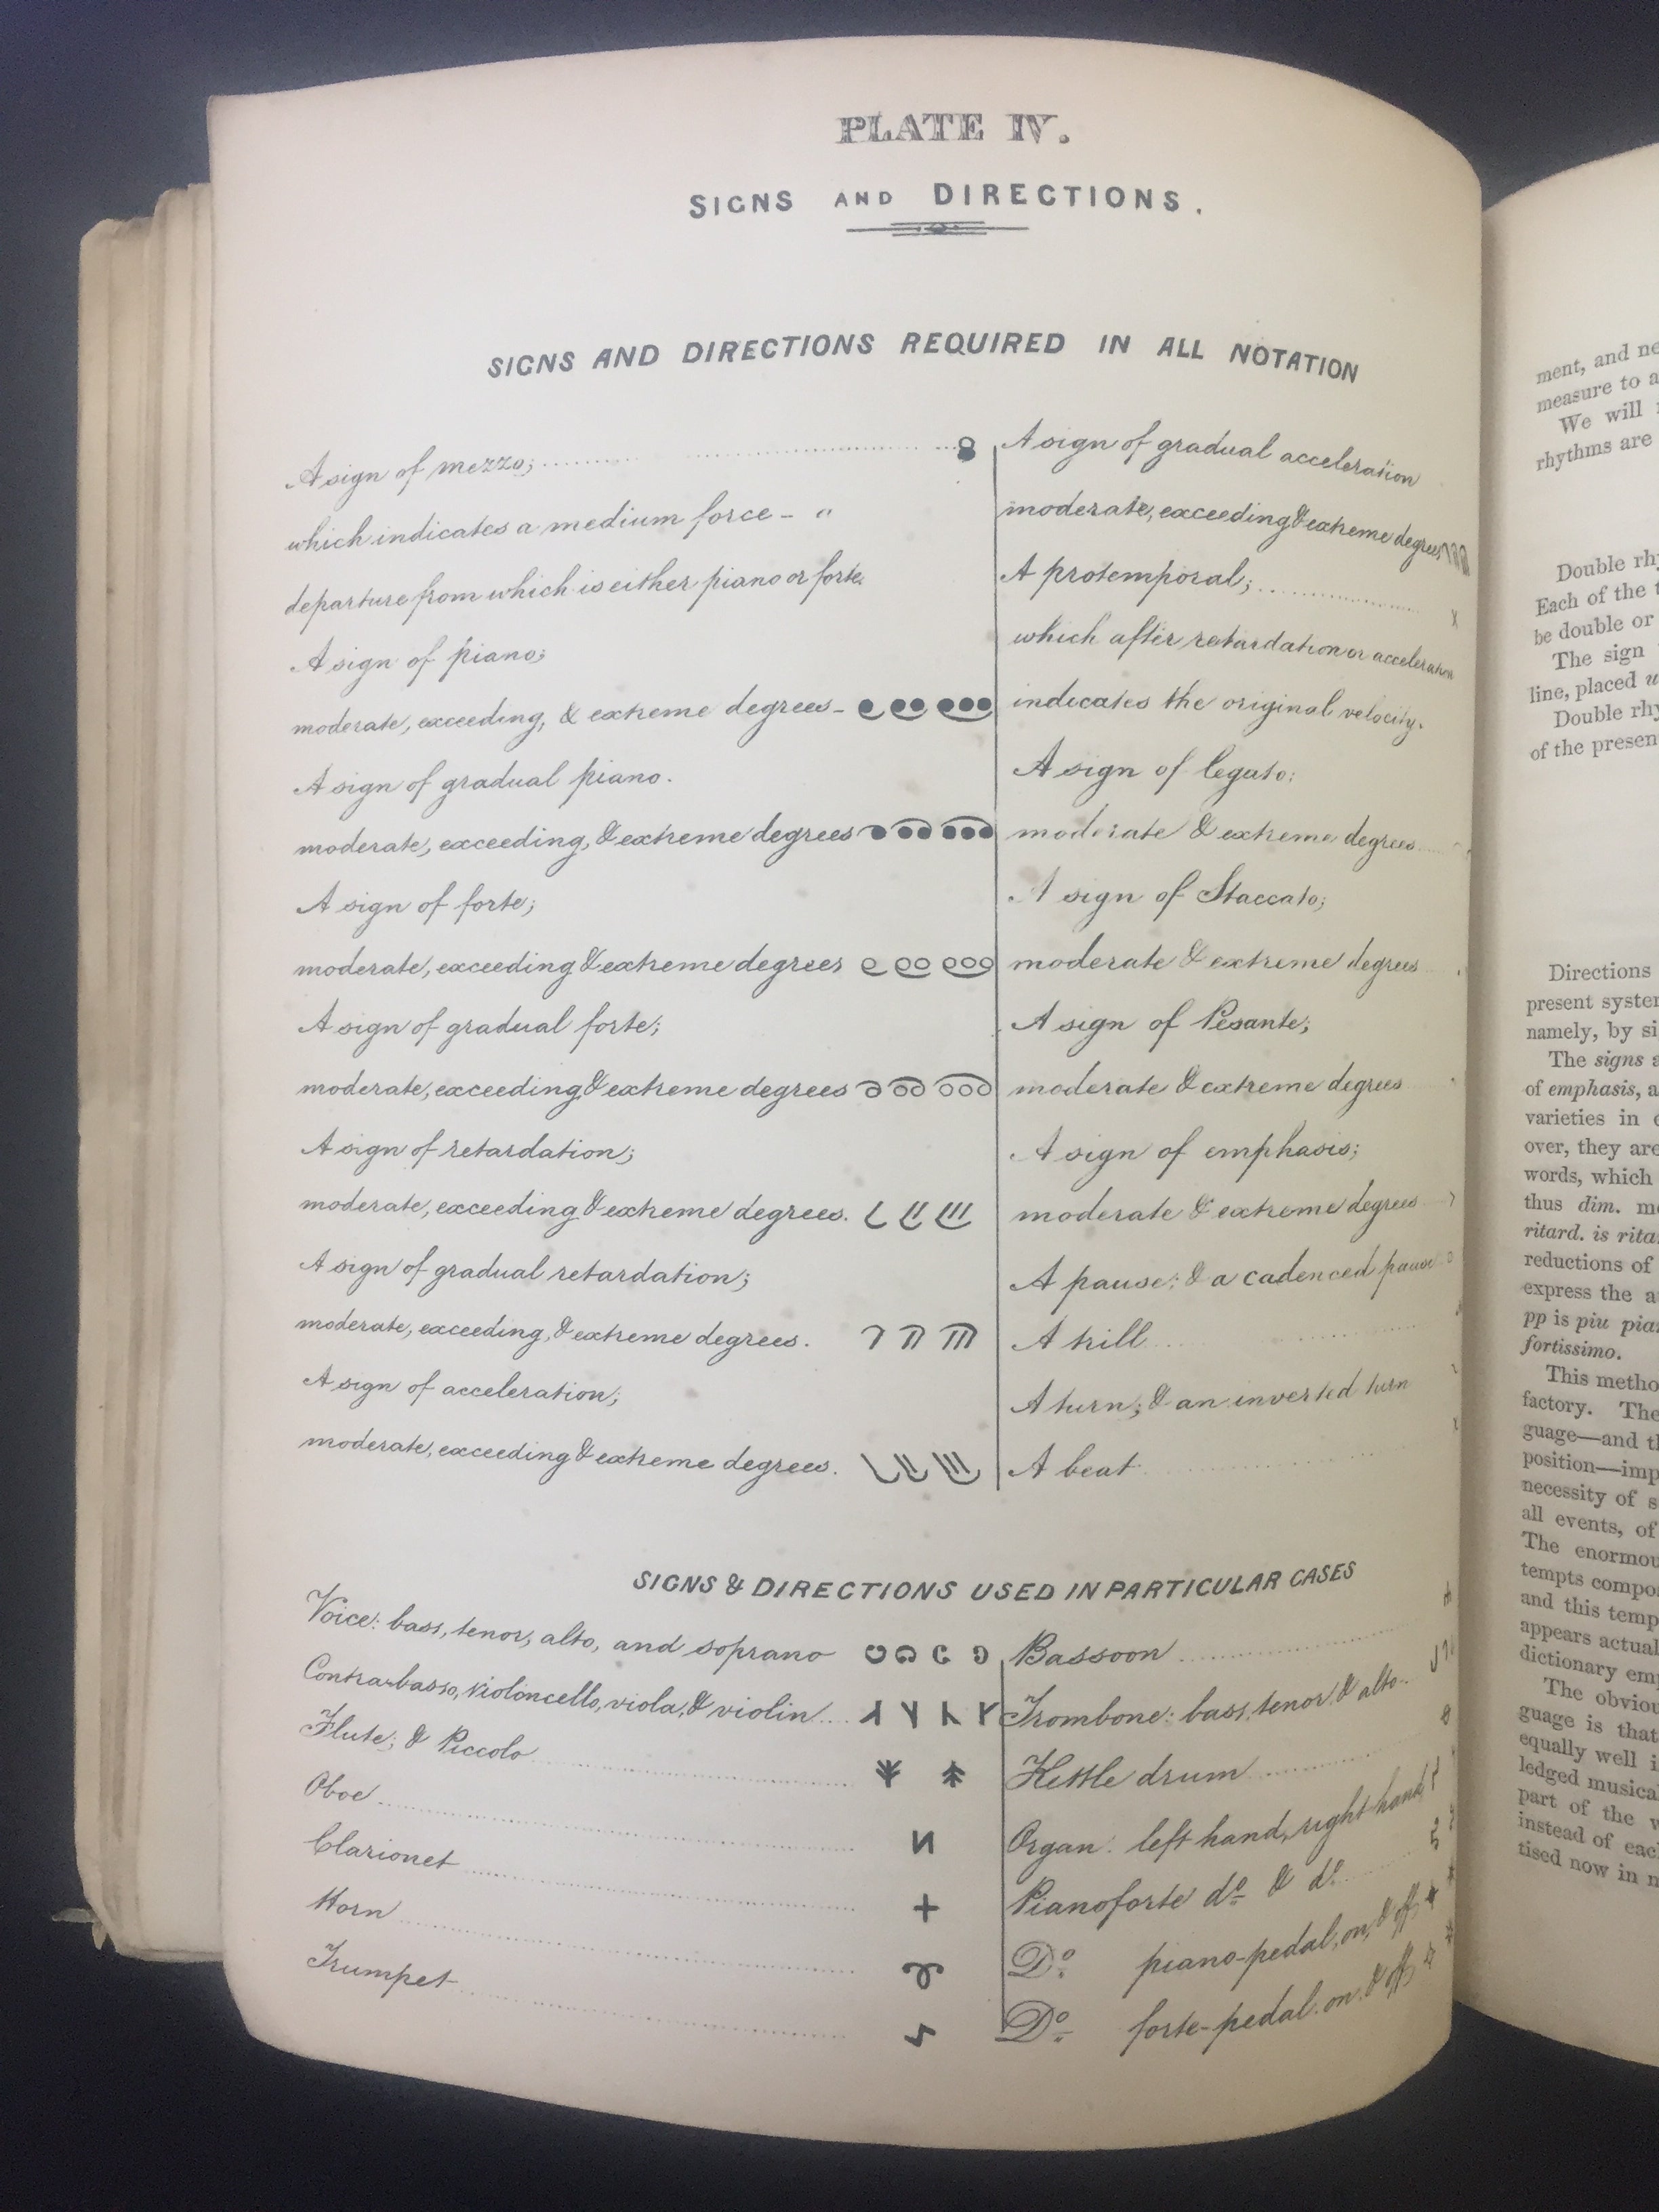 PLATE IV.
SIGNS AND DIRECTIONS.
SIGNS AND DIRECTIONS REQUIRED IN ALL NOTATION
A sign of mezzo;
which indicates a medium force - "
departure from which is either piano or forte.
A sign of piano;
moderate, exceeding, & extreme degrees -
A sign of gradual piano.
moderate, exceeding, & extreme degrees
A sign of forte;
moderate, exceeding & extreme degrees
A sign of gradual forte;
moderate, exceeding & extreme degrees
A sign of retardation;
moderate, exceeding & extreme degrees.
A sign of gradual retardation;
moderate, exceeding, & extreme degrees.
A sign of acceleration;
moderate, exceeding & extreme degrees.
A sign of gradual acceleration
moderate, exceeding & extreme degrees
A protemporal;
which after retardation or acceleration
indicates the original velocity.
A sign of legato;
moderate & extreme degrees
A sign of Staccato;
moderate & extreme degrees
A sign of Pesante;
moderate & extreme degrees
A sign of emphasis;
moderate & extreme degrees
A pause; & a cadenced pause
A trill
A turn; & an inverted turn
A beat
SIGNS & DIRECTIONS USED IN PARTICULAR CASES
Voice: bass, tenor, alto, and soprano
Contra-basso, violoncello, viola, & violin
Flute; & Piccolo
Oboe
Clarionet
Horn
Trumpet
Bassoon
Trombone: bass, tenor, & alto
Kettle drum
Organ: left hand, right hand
Pianoforte do. & do.
Do. piano-pedal, on, & off
Do. forte-pedal. on. & off
ment, and
measure to
We will
rhythms are
Double
Each of the
be double or
The sign
line, placed
Double
of the
Directions
present
namely, by
The signs
of emphasis,
varieties in
over, they are
words, which
thus dim.
ritard. is
reductions of
express the
pp is piu
fortissimo.
This
factory. The
guage—and
position—
necessity of
all events, of
The
tempts
and this
appears
dictionary
The
guage is that
equally well
ledged
part of the
instead of
tised now in